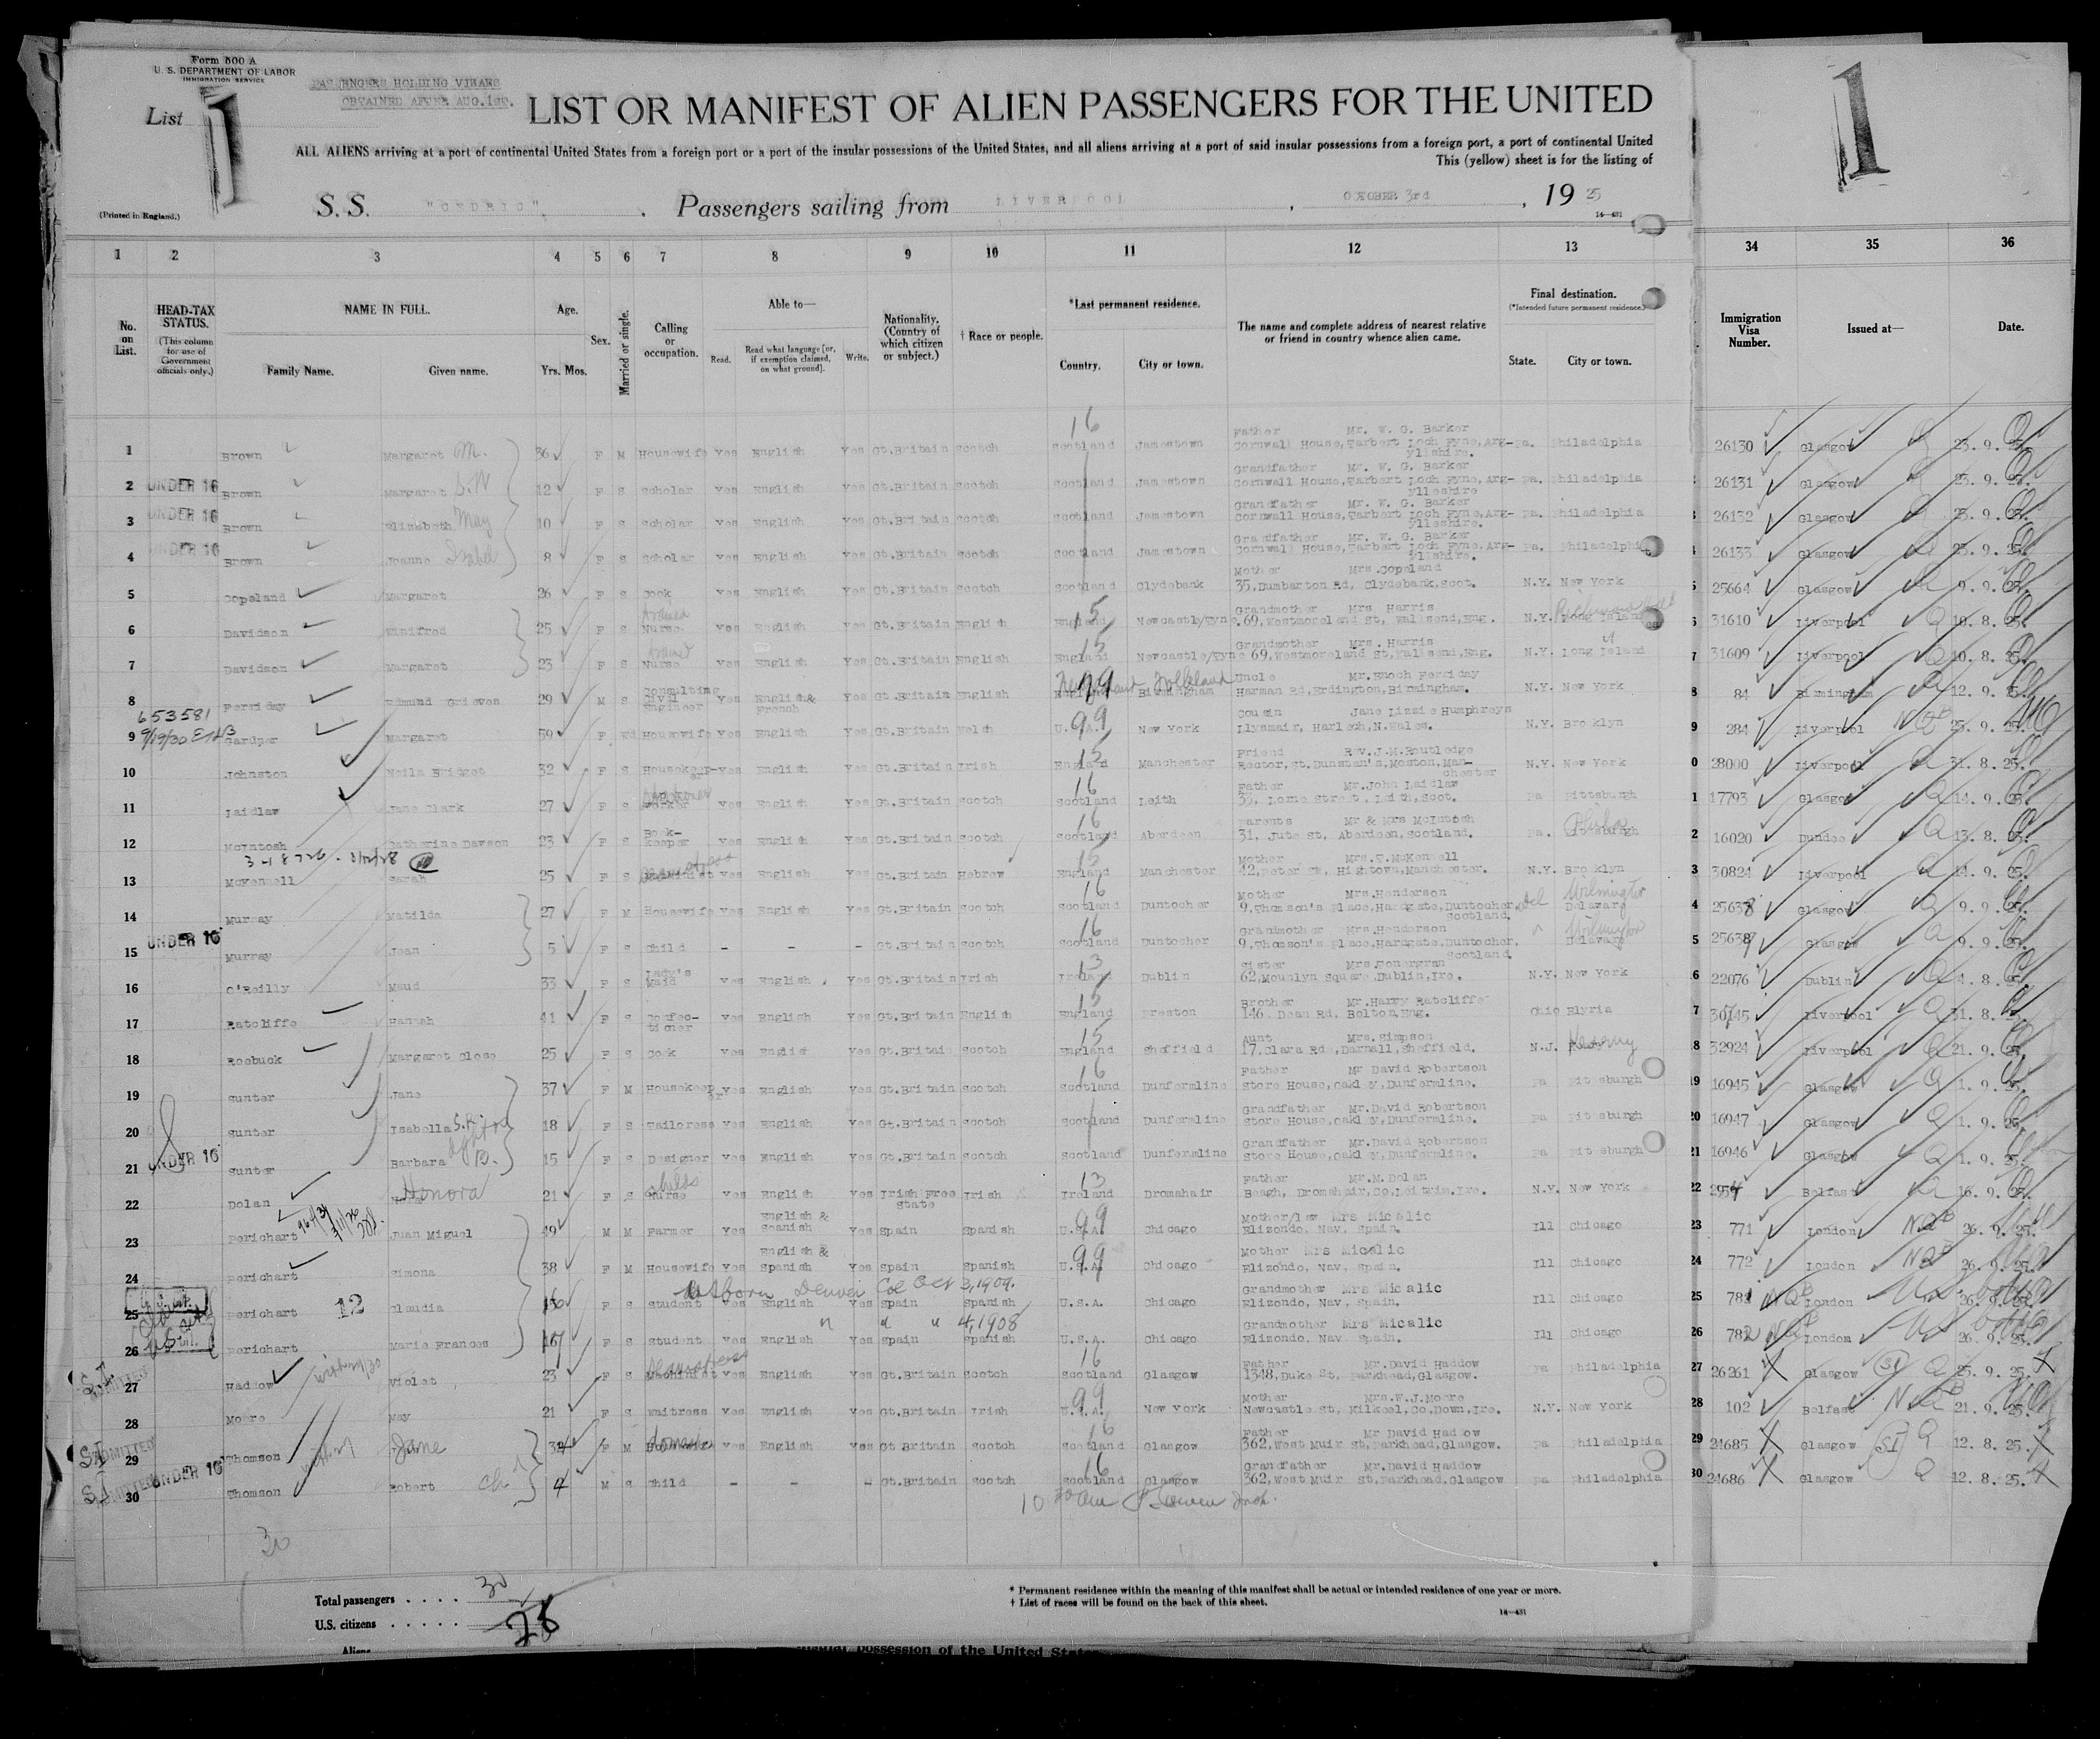 Form 500 A
U. S. DEPARTMENT OF LABOR
IMMIGRATION SERVICE
PASSENGERS HOLDING VISAES
OBTAINED AFTER AUG. 1st.
List 1
1
LIST OR MANIFEST OF ALIEN PASSENGERS FOR THE UNITED
ALL ALIENS arriving at a port of continental United States from a foreign port or a port of the insular possessions of the United States, and all aliens arriving at a port of said insular possessions from a foreign port, a port of continental United
This (yellow) sheet is for the listing of
(Printed in England.)
S. S. "CEDRIC", Passengers sailing from LIVERPOOL, OCTOBER 3rd, 19 25
14—431
1 2 3 4 5 6 7 8 9 10 11 12 13 34 35 36
No. on List.
HEAD-TAX STATUS. (This column for use of Government officials only.)
NAME IN FULL. Family Name. Given name.
Age. Yrs. Mos.
Sex.
Married or single.
Calling or occupation.
Able to— Read. Read what language [or, if exemption claimed, on what ground]. Write.
Nationality. (Country of which citizen or subject.)
† Race or people.
*Last permanent residence. Country. City or town.
The name and complete address of nearest relative or friend in country whence alien came.
Final destination. (*Intended future permanent residence.) State. City or town.
Immigration Visa Number.
Issued at—
Date.
1 Brown Margaret M. 36 F M Housewife Yes English Yes Gt.Britain Scotch 16 Scotland Jamestown Father Mr. W. G. Barker Cornwall House, Tarbert Loch Fyne, Arg-yllshire. Pa. Philadelphia 26130 Glasgow 23. 9. 25.
2 UNDER 16 Brown Margaret S.W 12 F S Scholar Yes English Yes Gt.Britain Scotch Scotland Jamestown Grandfather Mr. W. G. Barker Cornwall House, Tarbert Loch Fyne, Arg-ylleshire Pa. Philadelphia 26131 Glasgow 23. 9. 25.
3 UNDER 16 Brown Elizabeth May 10 F S Scholar Yes English Yes Gt.Britain Scotch Scotland Jamestown Grandfather Mr. W. G. Barker Cornwall House, Tarbert Loch Fyne, Arg-ylleshire. Pa. Philadelphia 26132 Glasgow 23. 9. 25.
4 UNDER 16 Brown Joanne Isabel 8 F S Scholar Yes English Yes Gt.Britain Scotch Scotland Jamestown Grandfather Mr. W. G. Barker Cornwall House, Tarbert Loch Fyne, Arg-yllshire. Pa. Philadelphia 26133 Glasgow 23. 9. 25.
5 Copeland Margaret 26 F S Cook Yes English Yes Gt.Britain Scotch Scotland Clydebank Mother Mrs. Copeland 35, Dumbarton Rd, Clydebank, Scot. N.Y. New York 25664 Glasgow 9. 9. 25.
6 Davidson Winifred 25 F S Nurse Yes English Yes Gt.Britain English 15 England Newcastle/Tyne Grandmother Mrs Harris 69, Westmoreland St, Wallsend, Eng. N.Y. Long Island Richmond Hill 31610 Liverpool 10. 8. 25.
7 Davidson Margaret 23 F S Nurse Yes English Yes Gt.Britain English 15 England Newcastle/Tyne Grandmother Mrs. Harris 69, Westmoreland St, Wallsend, Eng. N.Y. Long Island 31609 Liverpool 10. 8. 25.
8 Ferriday Edmund Grieves 29 M S Consulting Civil Engineer Yes English & French Yes Gt.Britain English 99 Birmingham Uncle Mr. Enoch Ferriday Harman Rd, Erdington, Birmingham. N.Y. New York 84 Birmingham 12. 9. 25.
653581 9/19/30
9 Gardner Margaret 59 F Wd Housewife Yes English Yes Gt.Britain Welsh 99 U.S.A. New York Cousin Jane Lizzie Humphreys Llysmair, Harlech, N.Wales. N.Y. Brooklyn 284 Liverpool 25. 9. 25.
10 Johnston Neila Bridget 32 F S Housekeep-er Yes English Yes Gt.Britain Irish 15 England Manchester Friend Rev. J.M. Routledge Rector, St. Dunstan's, Moston, Man-chester N.Y. New York 28000 Liverpool 31. 8. 25.
11 Laidlaw Jane Clark 27 F S Worker Yes English Yes Gt.Britain Scotch 16 Scotland Leith Father Mr. John Laidlaw 33, Lorne Street, Leith, Scot. Pa Pittsburgh 17793 Glasgow 14. 9. 25.
12 McIntosh Catherine Dawson 23 F S Book-keeper Yes English Yes Gt.Britain Scotch 16 Scotland Aberdeen Parents Mr & Mrs McIntosh 31, Jute St, Aberdeen, Scotland. Pa. Pittsburgh Phila 16020 Dundee 13. 8. 25.
13 McKennell Sarah 25 F S Machinist Yes English Yes Gt.Britain Hebrew 15 England Manchester Mother Mrs. McKennell 42, Peter St, Hightown, Manchester. N.Y. Brooklyn 30824 Liverpool 14. 9. 25.
14 Murray Matilda 27 F M Housewife Yes English Yes Gt.Britain Scotch 16 Scotland Duntocher Mother Mrs. Henderson 9, Thomson's Place, Hardgate, Duntocher, Scotland. Del Wilmington Delaware 25638 Glasgow 9. 9. 25.
15 UNDER 16 Murray Jean 5 F S Child - - - Gt.Britain Scotch 16 Scotland Duntocher Grandmother Mrs. Henderson 9, Thomson's Place, Hardgate, Duntocher, Scotland. Wilmington Delaware 25637 Glasgow 9. 9. 25.
16 O'Reilly Maud 33 F S Lady's Maid Yes English Yes Gt.Britain Irish 13 Ireland Dublin Sister 62, Mountjoy Square, Dublin, Ire. N.Y. New York 22076 Dublin 4. 8. 25.
17 Ratcliffe Hannah 41 F S Confec-tioner Yes English Yes Gt.Britain English 15 England Preston Brother Mr. Harry Ratcliffe 146. Dean Rd, Bolton, Eng. Ohio Elyria 30745 Liverpool 31. 8. 25.
18 Roebuck Margaret Close 25 F S Cook Yes English Yes Gt.Britain Scotch 15 England Sheffield Aunt Mrs. Simpson 17, Clara Rd, Darnall, Sheffield. N.J. Kearny 32924 Liverpool 21. 9. 25.
19 Sunter Jane 37 F M Housekeeper Yes English Yes Gt.Britain Scotch 16 Scotland Dunfermline Father Mr David Robertson Store House, Oakley, Dunfermline. Pa Pittsburgh 16945 Glasgow 1. 9. 25.
20 Sunter Isabella S.R. 18 F S Tailoress Yes English Yes Gt.Britain Scotch Scotland Dunfermline Grandfather Mr. David Robertson Store House, Oakley, Dunfermline. Pa Pittsburgh 16947 Glasgow 1. 9. 25.
21 UNDER 16 Sunter Barbara 15 F S Designer Yes English Yes Gt.Britain Scotch Scotland Dunfermline Grandfather Mr. David Robertson Store House, Oakley, Dunfermline. Pa Pittsburgh 16946 Glasgow 1. 9. 25.
22 Dolan Honora 21 F S Nurse Yes English Yes Irish Free State Irish 13 Ireland Dromahair Father Mr. M. Dolan Beagh, Dromahair, Co. Leitrim, Ire. N.Y. New York Belfast 16. 9. 25.
23 Perichart Juan Miguel 49 M M Farmer Yes English & Spanish Yes Spain Spanish 99 U.S.A. Chicago Mother/law Mrs Micalic Elizondo, Nav, Spain. Ill Chicago 771 London 26. 9. 25.
24 Perichart Simona 38 F M Housewife Yes English & Spanish Yes Spain Spanish 99 U.S.A. Chicago Mother Mrs Micalic Elizondo, Nav, Spain. Ill Chicago 772 London 26. 9. 25.
born Denver Col Oct 3, 1909.
25 Perichart 12 Claudia 16 F S Student Yes English Yes Spain Spanish U.S.A. Chicago Grandmother Mrs Micalic Elizondo, Nav, Spain. Ill Chicago 781 London 26. 9. 25.
" " " 4, 1908
26 Perichart Marie Frances 17 F S Student Yes English Yes Spain Spanish U.S.A. Chicago Grandmother Mrs Micalic Elizondo, Nav, Spain. Ill Chicago 782 London 26. 9. 25.
27 S.I. ADMITTED Haddow Violet 23 F S Machinist Yes English Yes Gt.Britain Scotch 16 Scotland Glasgow Father Mr. David Haddow 1348, Duke St, Parkhead, Glasgow. Pa Philadelphia 26261 Glasgow SI 25. 9. 25.
28 Moore May 21 F S Waitress Yes English Yes Gt.Britain Irish 99 U.S.A. New York Mother Mrs. W.J. Moore Newcastle St, Kilkeel, Co, Down, Ire. N.Y. New York 102 Belfast 21. 9. 25.
29 SI ADMITTED Thomson Jane F M Housewife Yes English Yes Gt.Britain Scotch 16 Scotland Glasgow Father Mr David Haddow 362, West Muir St, Parkhead, Glasgow. Pa Philadelphia 24685 Glasgow SI 12. 8. 25.
30 SI ADMITTED UNDER 16 Thomson Robert 4 M S Child - - - Gt.Britain Scotch 16 Scotland Glasgow Grandfather Mr. David Haddow 362, West Muir St, Parkhead, Glasgow Pa Philadelphia 24686 Glasgow 12. 8. 25.
30
Total passengers . . . . . 30
U.S. citizens . . . . . .
28
Aliens
* Permanent residence within the meaning of this manifest shall be actual or intended residence of one year or more.
† List of races will be found on the back of this sheet.
14—431
possession of the United States